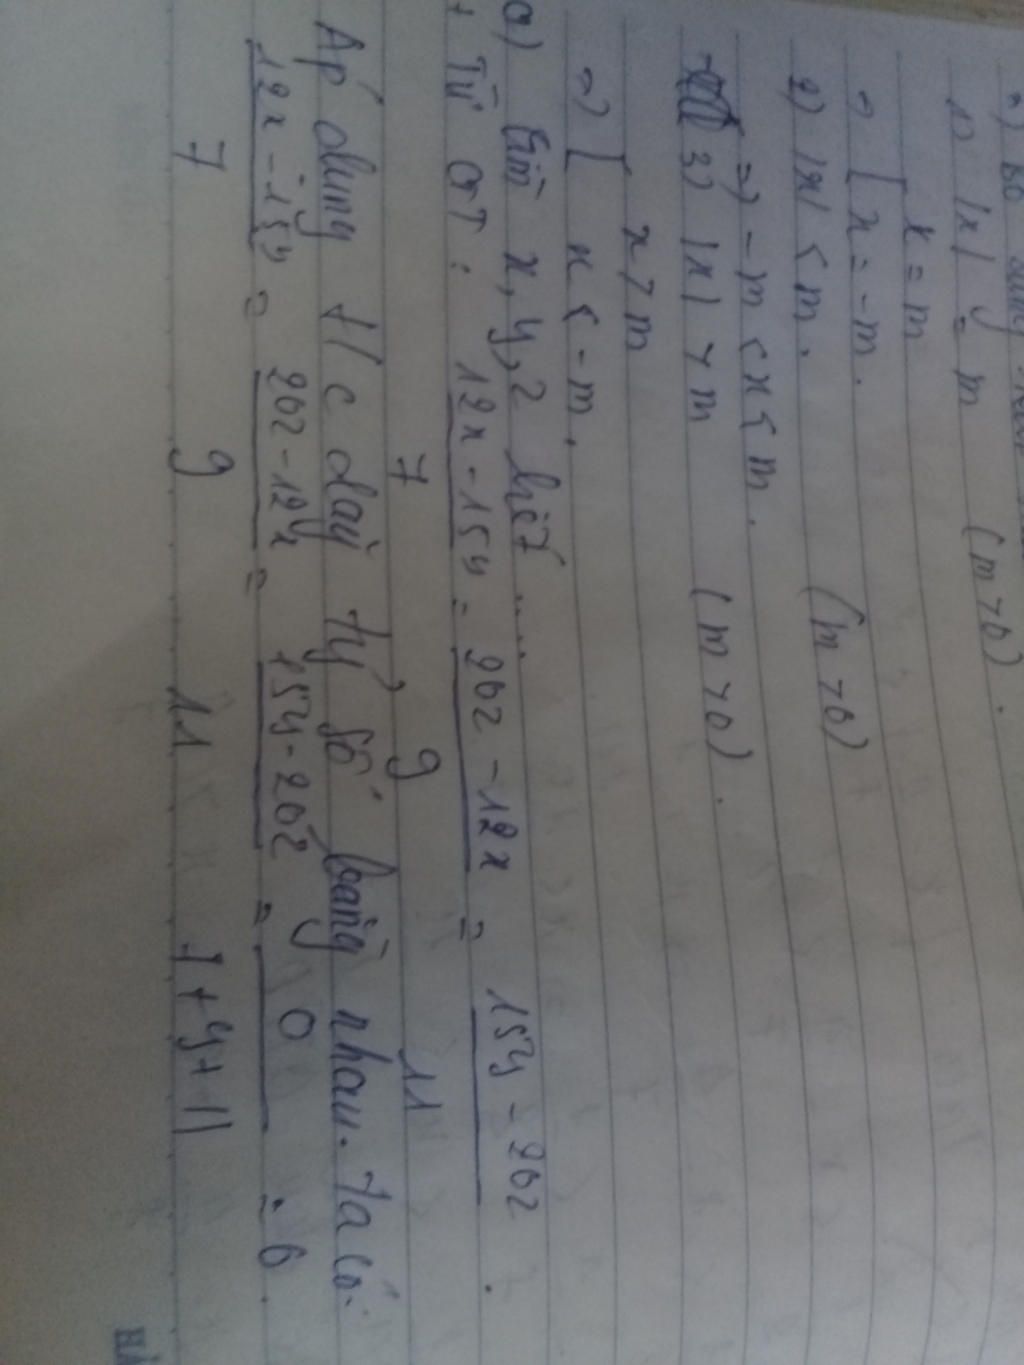 1) |x| = m (m > 0).
x = m
=> [ x = -m.
2) |x| < m. (m > 0)
=> -m < x < m.
3) |x| > m (m > 0).
x > m
=> [ x < -m.
a) Tìm x, y, z biết ....
+ Từ GT: 12x - 15y = 20z - 12x = 15y - 20z.
7 9 11
Áp dụng t/c dãy tỷ số bằng nhau. Ta có:
12x - 15y = 20z - 12x = 15y - 20z = 0 = 0.
7 9 11 7 + 9 + 11